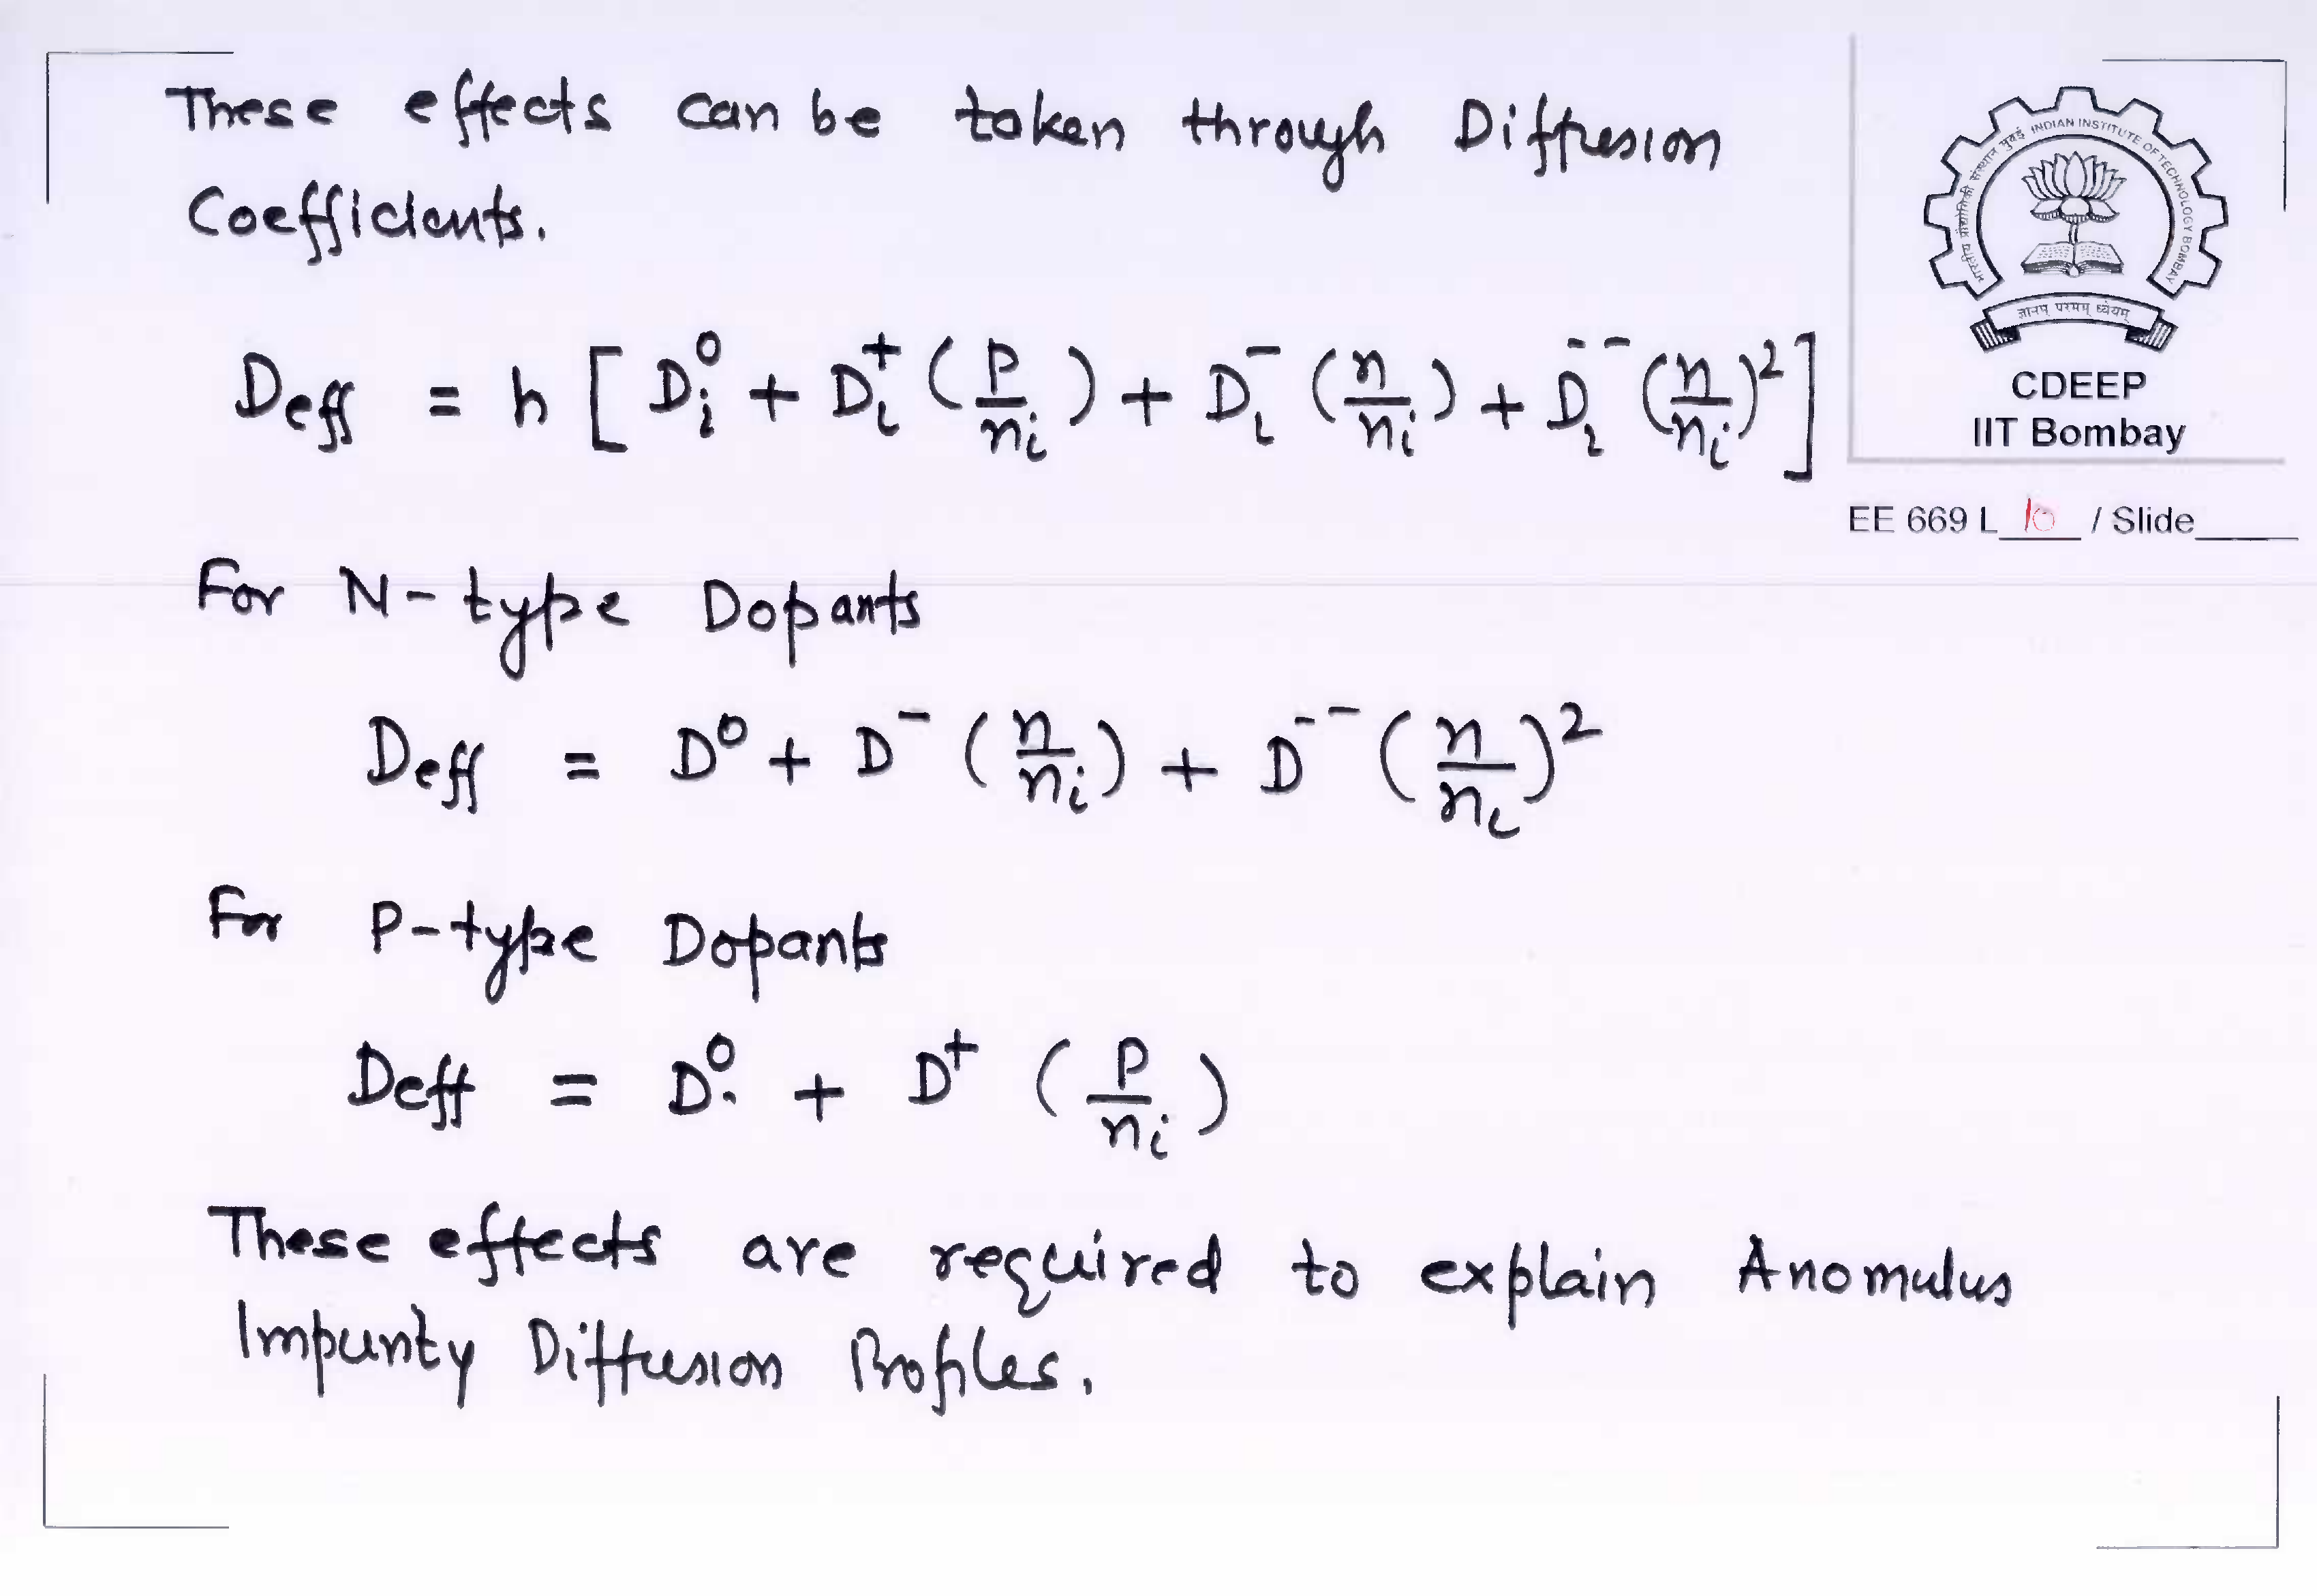 These effects can be taken through Diffusion
Coefficients.
भारतीय प्रौद्योगिकी संस्थान मुंबई INDIAN INSTITUTE OF TECHNOLOGY BOMBAY
ज्ञानम् परमम् ध्येयम्
CDEEP
IIT Bombay
Deff = h [ Dᵢ⁰ + Dᵢ⁺ (p/nᵢ) + Dᵢ⁻ (n/nᵢ) + Dᵢ⁻⁻ (n/nᵢ)² ]
EE 669 L 10 / Slide
For N-type Dopants
Deff = D⁰ + D⁻ (n/nᵢ) + D⁻⁻ (n/nᵢ)²
For P-type Dopants
Deff = D⁰. + D⁺ (P/nᵢ)
These effects are required to explain Anomulus
Impurity Diffusion Profiles.